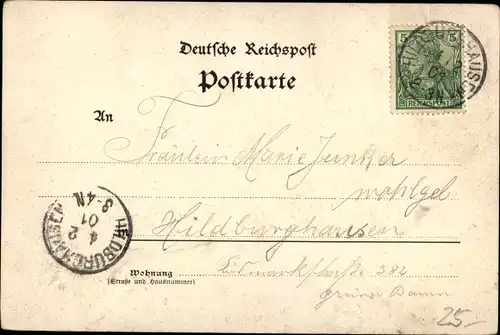 Deutsche Reichspost
Postkarte
5 5
REICHSPOST
An
Fräulein Marie Junker
wohlgeb
Hildburghausen
Wohnung
(Straße und Hausnummer)
382
grüner Baum
HILDBURGHAUSEN
2
4
01
3-4N.
25-